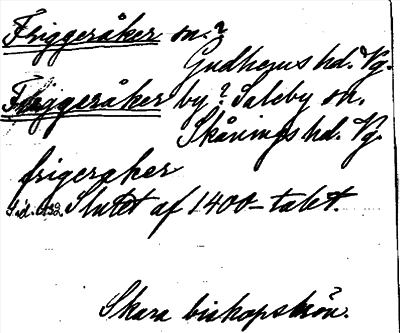 Friggeråker sn.?
Gudhems hd. Vg.
Friggeråker by? Saleby sn.
Skånings hd. Vg.
frigeraker
Slutet af 1400-talet.
Skara biskopskrön.